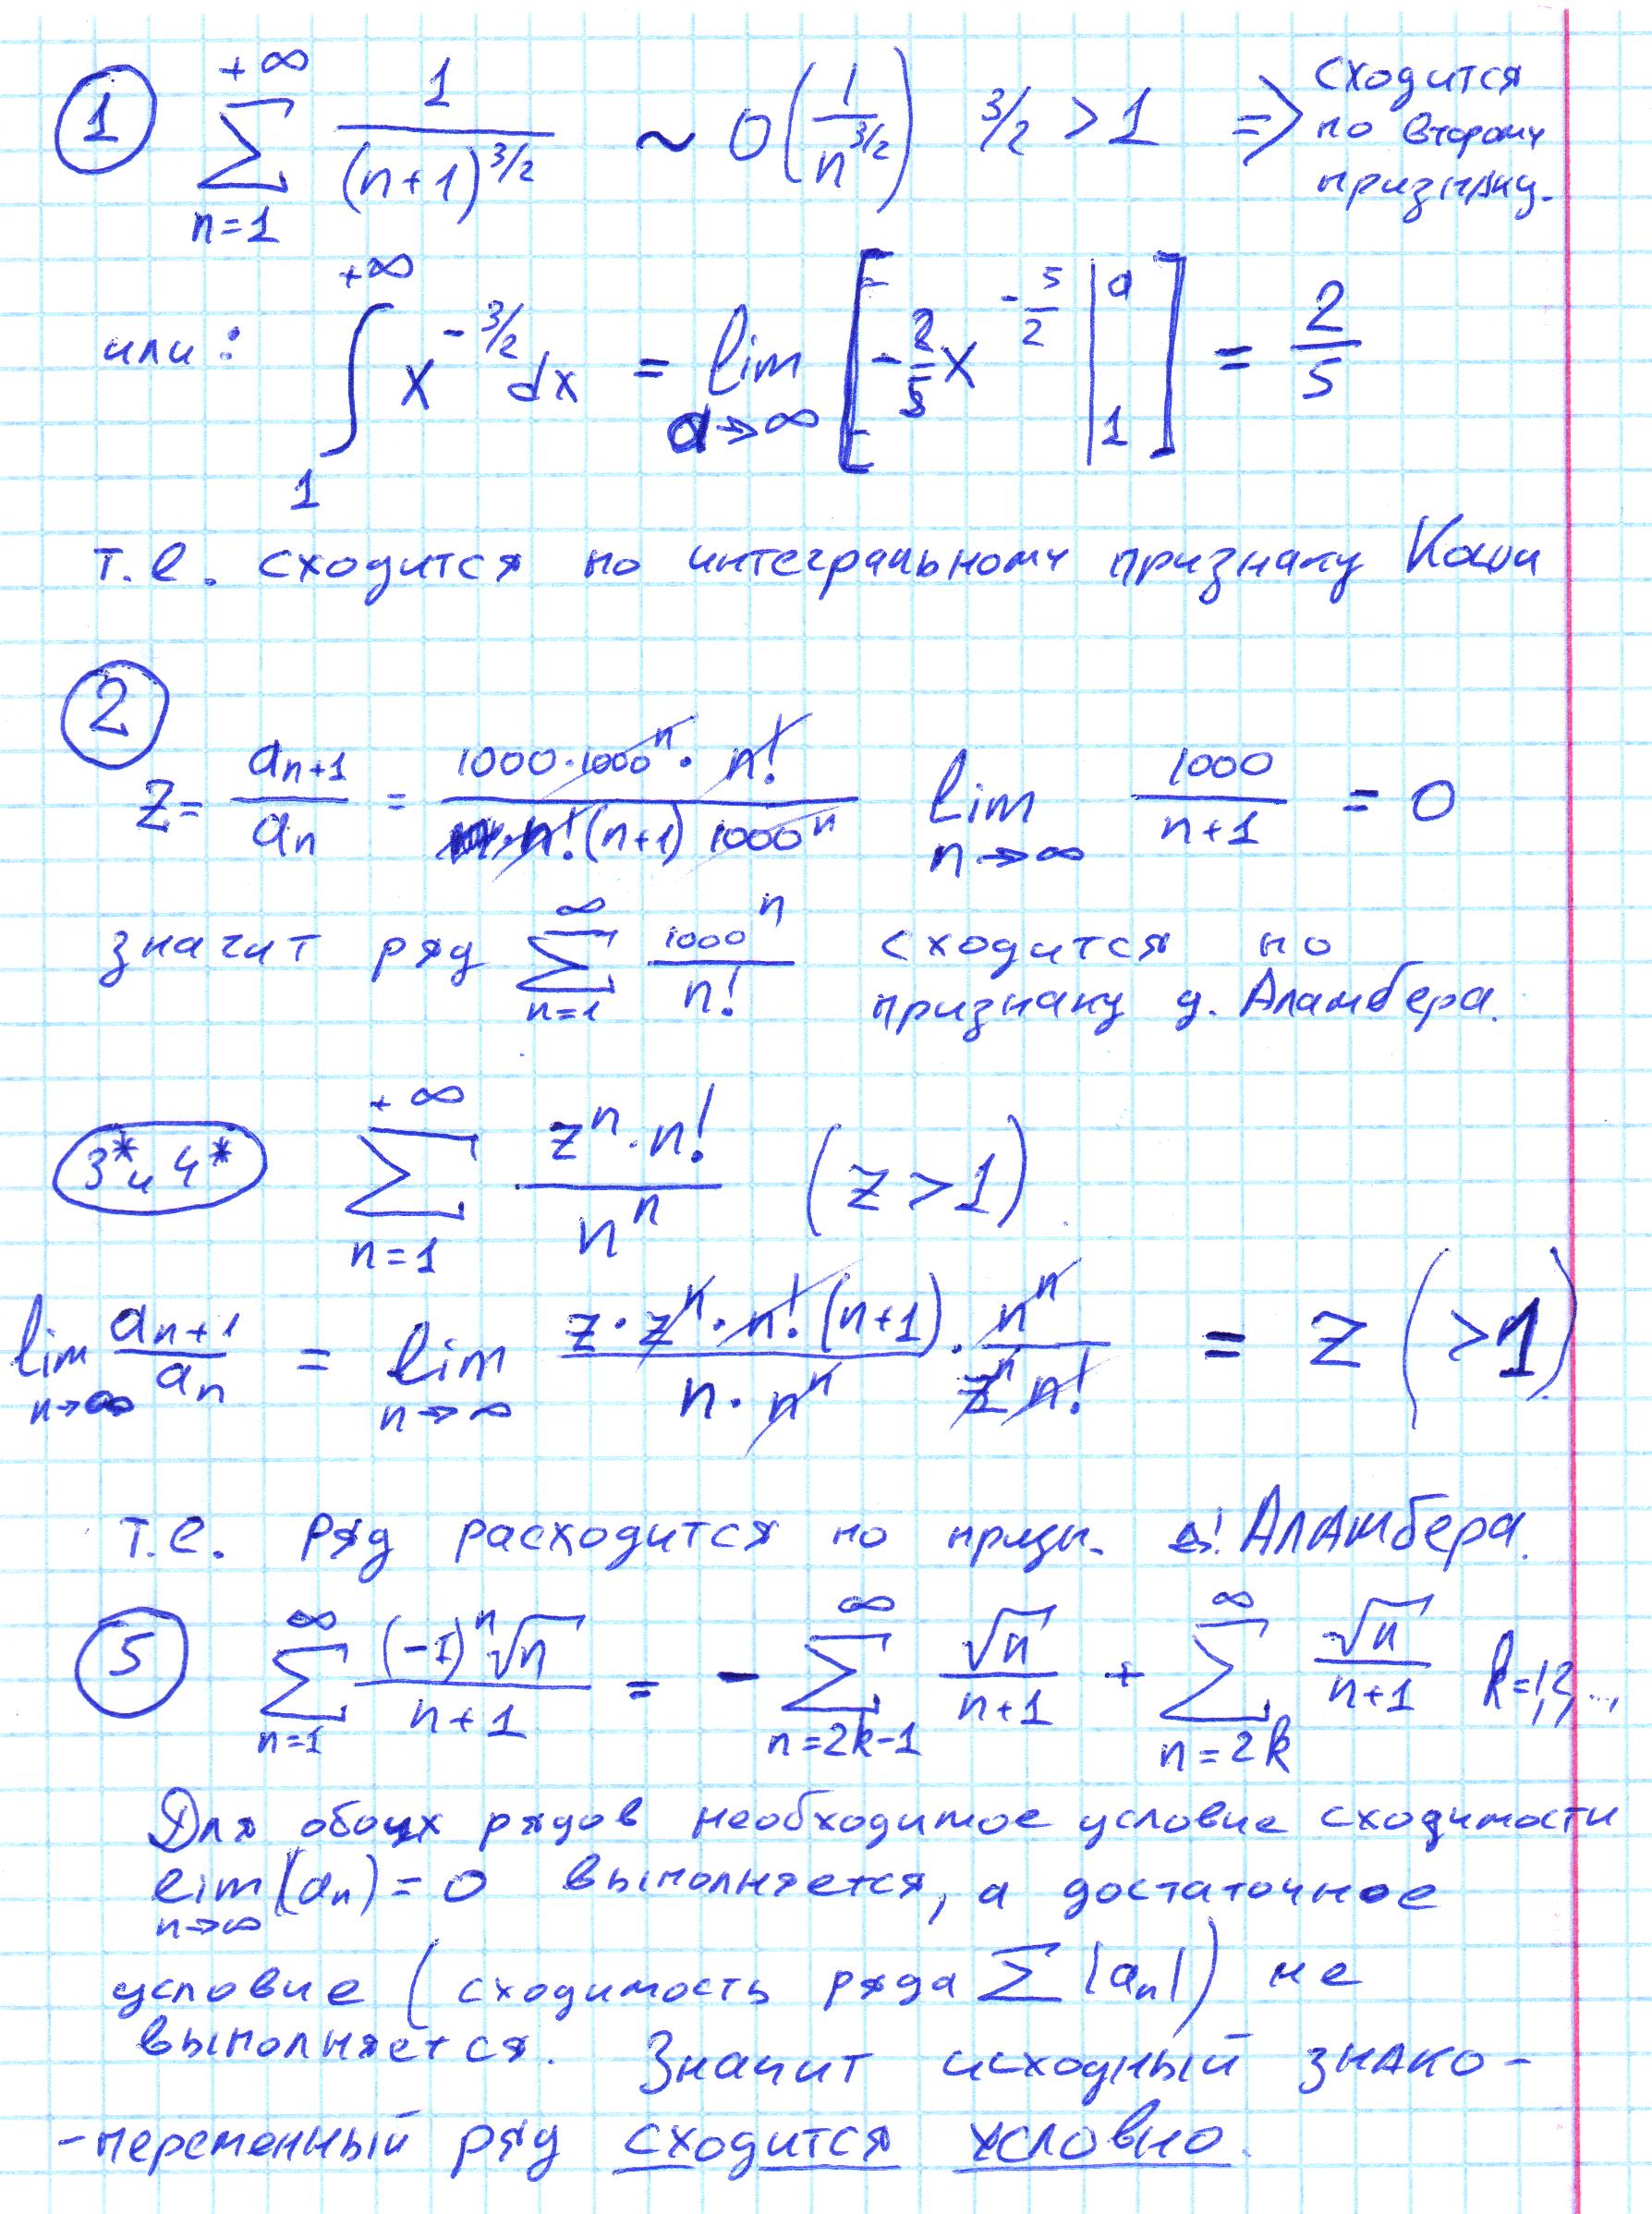 ① \sum_{n=1}^{+∞} \frac{1}{(n+1)^{3/2}} ~ O(\frac{1}{n^{3/2}}) 3/2 > 1 => сходится
по второму
признаку.
или: \int_{1}^{+∞} x^{-3/2} dx = lim_{a→∞} [-\frac{2}{5} x^{-\frac{5}{2}} |_{1}^{a}] = \frac{2}{5}
т.е. сходится по интегральному признаку Коши
②
z = \frac{a_{n+1}}{a_n} = \frac{1000·1000^n · n!}{n!(n+1) 1000^n} lim_{n→∞} \frac{1000}{n+1} = 0
значит ряд \sum_{n=1}^{∞} \frac{1000^n}{n!} сходится по
признаку д. Аламбера.
3* и 4* \sum_{n=1}^{+∞} \frac{z^n · n!}{n^n} (z > 1)
lim_{n→∞} \frac{a_{n+1}}{a_n} = lim_{n→∞} \frac{z·z^n · n! (n+1)}{n · n^n} · \frac{n^n}{z^n n!} = z (>1)
т.е. ряд расходится по призн. Аламбера.
⑤ \sum_{n=1}^{∞} \frac{(-1)^n \sqrt{n}}{n+1} = - \sum_{n=2k-1}^{∞} \frac{\sqrt{n}}{n+1} + \sum_{n=2k}^{∞} \frac{\sqrt{n}}{n+1} k=1,2,...,
Для обоих рядов необходимое условие сходимости
lim_{n→∞} (a_n) = 0 выполняется, а достаточное
условие (сходимость ряда \sum |a_n|) не
выполняется. Значит исходный знако-
-переменный ряд сходится условно.